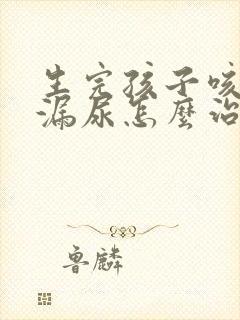 生完孩子咳
漏尿怎麼治
鲁麟